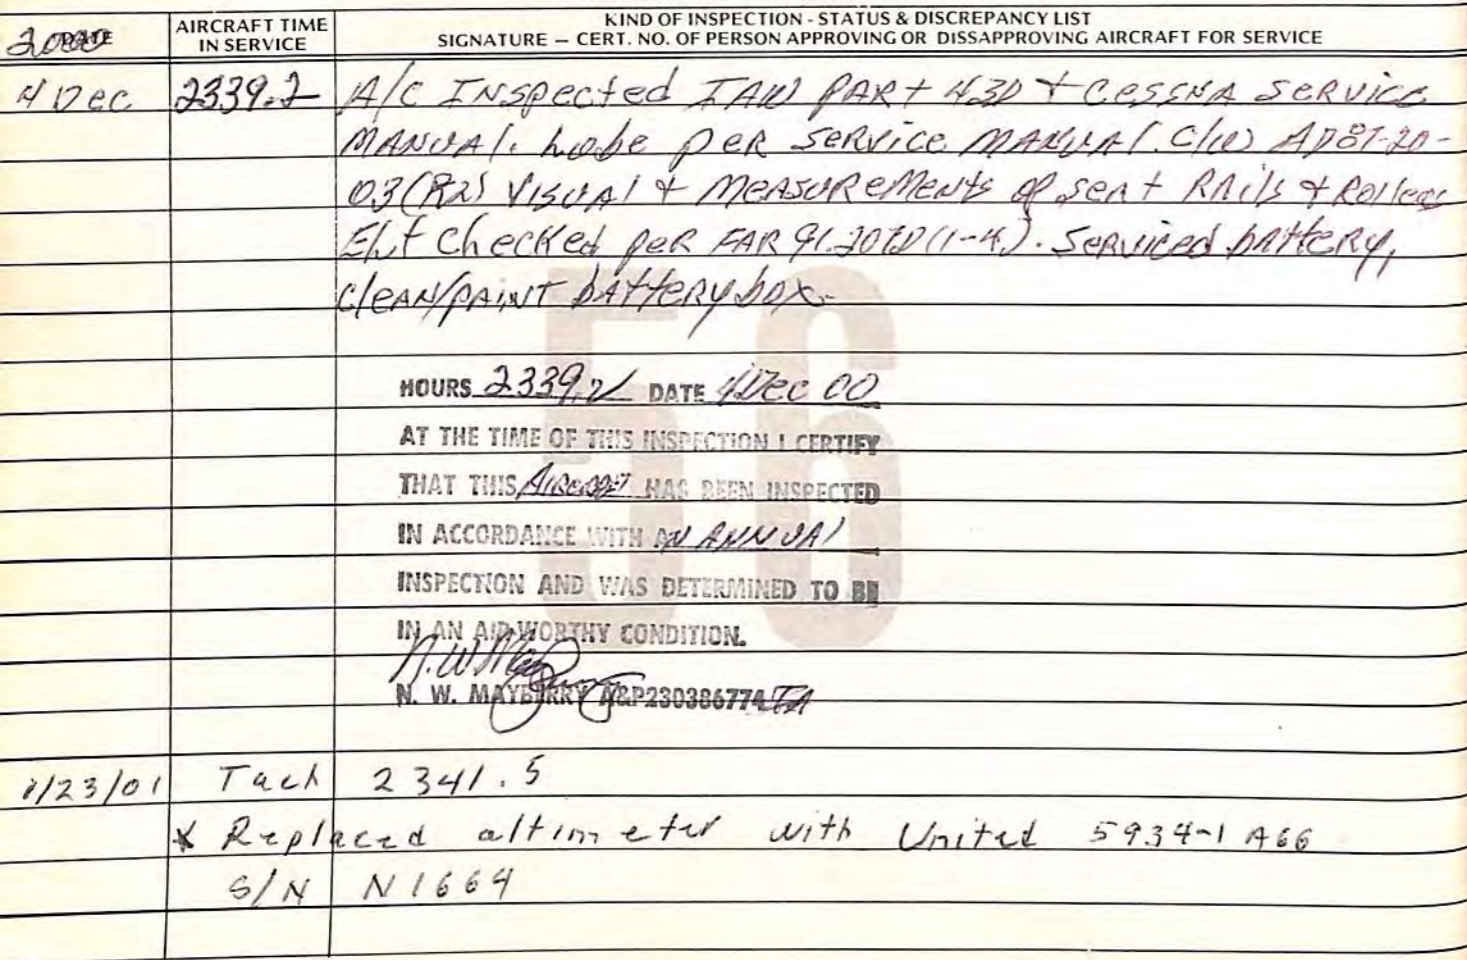 2000 DATE
AIRCRAFT TIME
IN SERVICE
KIND OF INSPECTION - STATUS & DISCREPANCY LIST
SIGNATURE — CERT. NO. OF PERSON APPROVING OR DISSAPPROVING AIRCRAFT FOR SERVICE
4 Dec 2339.2 A/C INspected IAW PARt 43D + CESSNA SERVICE
MANUAl. Lube peR SERVICE MANUAl. C/W AD87-20-
03(R2) VISUAl + MEASUREMENts of seat RAils + Rollers
Elt checked peR FAR 91.207D(1-4). SERViced bAttery,
cleAN/pAINT bAttery box.
56
HOURS 2339.2 DATE 4 Dec 00
AT THE TIME OF THIS INSPECTION I CERTIFY
THAT THIS Aircraft HAS BEEN INSPECTED
IN ACCORDANCE WITH AN ANNUAl
INSPECTION AND WAS DETERMINED TO BE
IN AN AIRWORTHY CONDITION.
N. W. MAYBERRY A&P230386774 IA
1/23/01 Tach 2341.5
* Replaced altimeter with United 5934-1 A66
S/N N1664